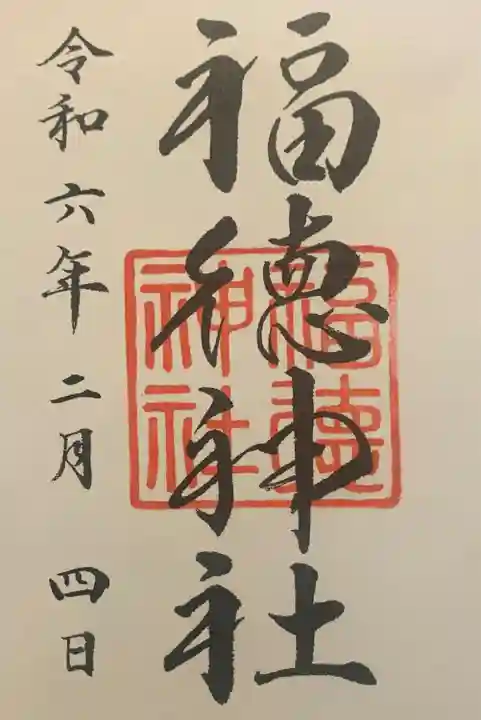 福徳神社
福徳
神社
令和六年二月 四日